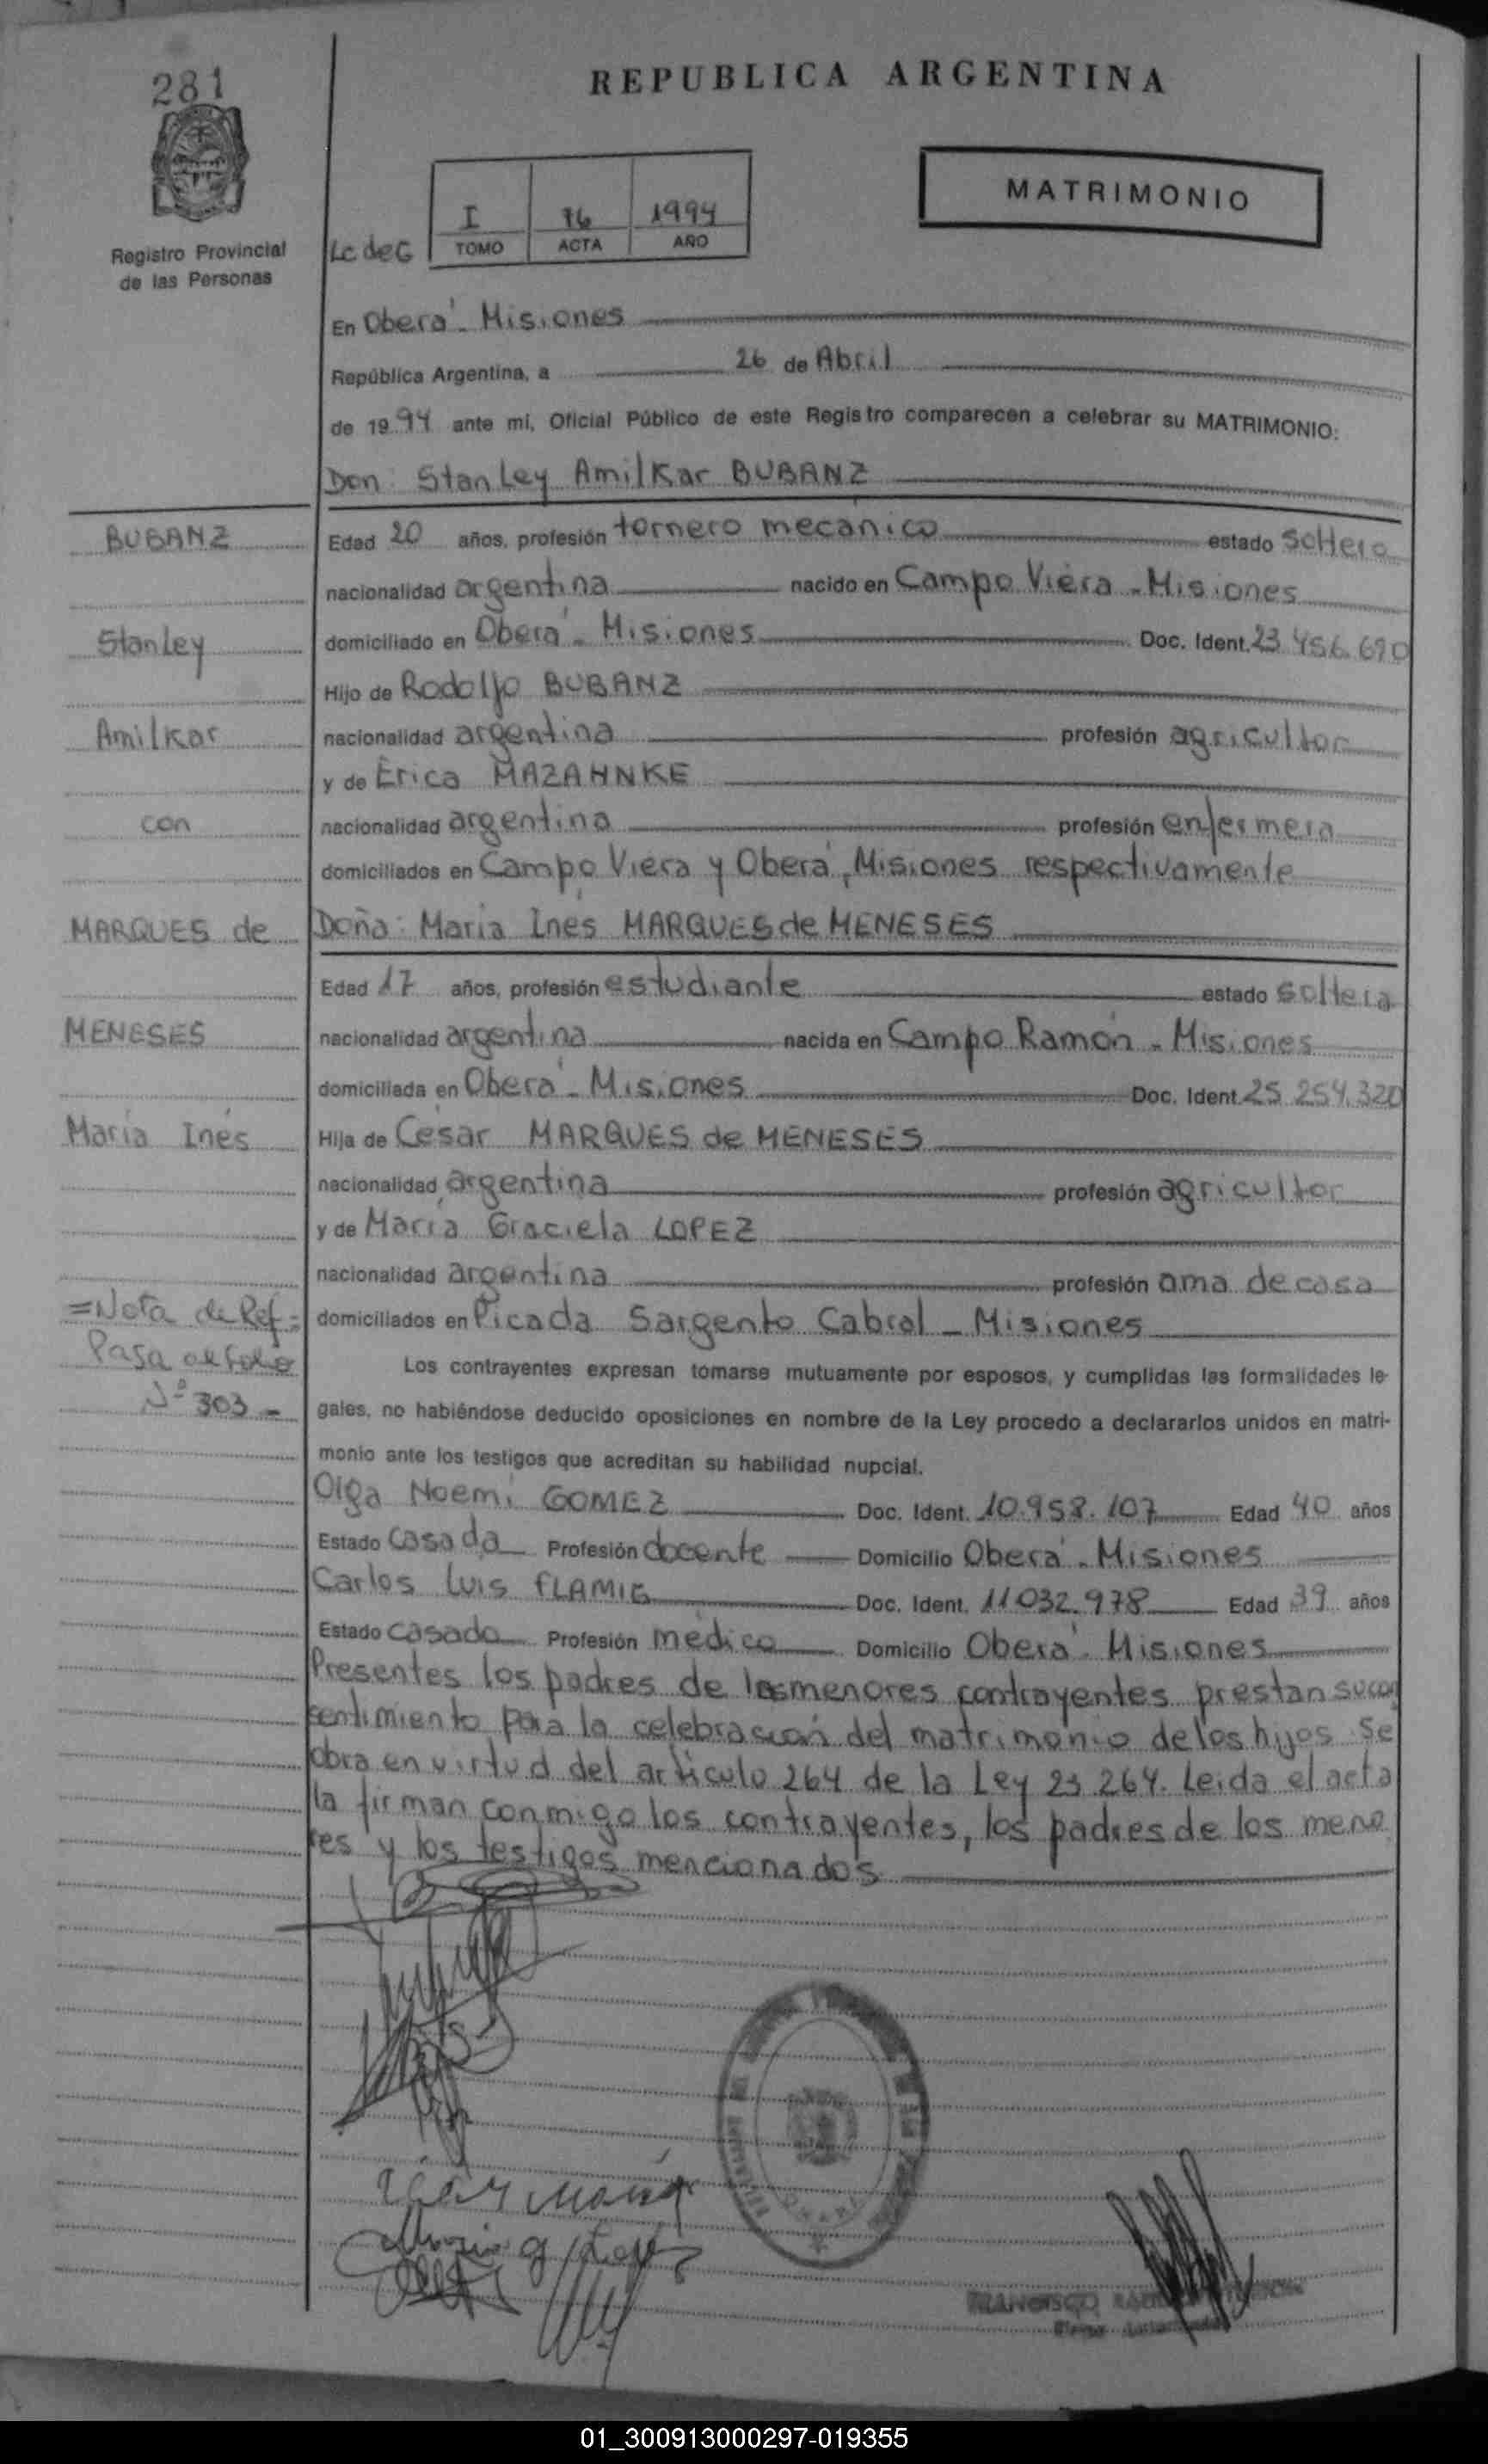 281
REPUBLICA ARGENTINA
MATRIMONIO
I 76 1994
Lc de C TOMO ACTA AÑO
Registro Provincial
de las Personas
En Oberá - Misiones
República Argentina, a 26 de Abril
de 1994 ante mi, Oficial Público de este Registro comparecen a celebrar su MATRIMONIO:
Don: Stanley Amilkar BUBANZ
BUBANZ
Edad 20 años, profesión tornero mecánico estado soltero
nacionalidad argentina nacido en Campo Viera - Misiones
Stanley
domiciliado en Oberá - Misiones Doc. Ident. 23.456.690
Hijo de Rodolfo BUBANZ
Amilkar
nacionalidad argentina profesión agricultor
y de Erica MAZAHNKE
con
nacionalidad argentina profesión enfermera
domiciliados en Campo Viera y Oberá, Misiones respectivamente
MARQUES de
Doña: María Inés MARQUES de MENESES
Edad 17 años, profesión estudiante estado soltera
MENESES
nacionalidad argentina nacida en Campo Ramón - Misiones
domiciliada en Oberá - Misiones Doc. Ident. 25.254.320
María Inés
Hija de César MARQUES de MENESES
nacionalidad argentina profesión agricultor
y de María Graciela LOPEZ
nacionalidad argentina profesión ama de casa
=Nota de Ref=
domiciliados en Picada Sargento Cabral - Misiones
Pasa al folio
Nº 303 -
Los contrayentes expresan tomarse mutuamente por esposos, y cumplidas las formalidades le-
gales, no habiéndose deducido oposiciones en nombre de la Ley procedo a declararlos unidos en matri-
monio ante los testigos que acreditan su habilidad nupcial.
Olga Noemí GOMEZ Doc. Ident. 10.958.107 Edad 40 años
Estado casada Profesión docente Domicilio Oberá - Misiones
Carlos Luis FLAMIG Doc. Ident. 11.032.978 Edad 39 años
Estado casado Profesión médico Domicilio Oberá - Misiones
Presentes los padres de los menores contrayentes prestan su con
sentimiento para la celebración del matrimonio de los hijos. Se
obra en virtud del artículo 264 de la Ley 23.264. Leída el acta
la firman conmigo los contrayentes, los padres de los meno
res y los testigos mencionados
FRANCISCO
01_300913000297-019355